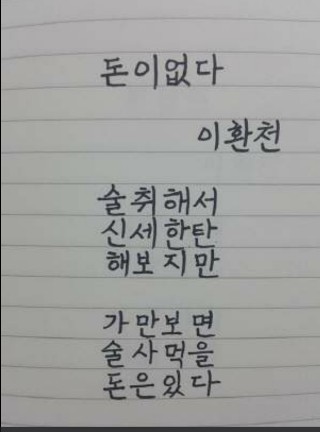 돈이없다
이환천
술취해서
신세한탄
해보지만
가만보면
술사먹을
돈은있다